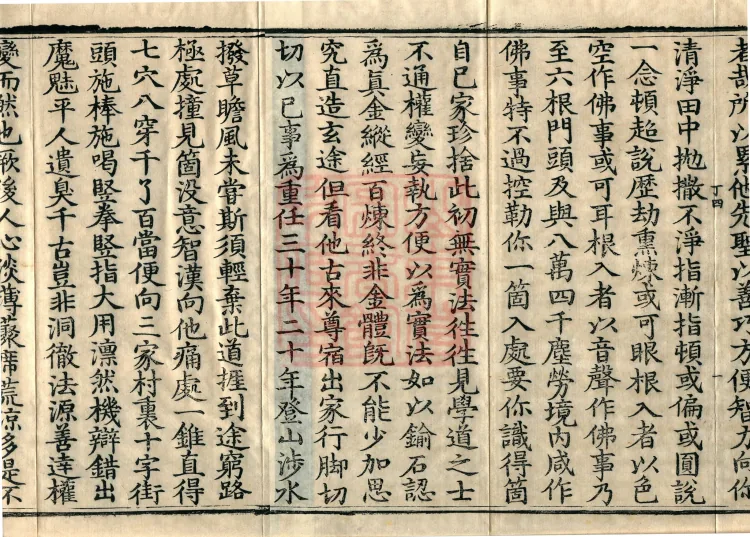 者哉所以累他先聖以善巧方便智力向你
清淨田中抛撒不淨指漸指頓或偏或圓說
一念頓超說歷劫熏煉或可眼根入者以色
空作佛事或可耳根入者以音聲作佛事乃
至六根門頭及與八萬四千塵勞境內咸作
佛事特不過控勒你一箇入處要你識得箇
自己家珍捨此初無實法往往見學道之士
不通權變妄執方便以為實法如以鍮石認
為真金縱經百煉終非金體旣不能少加思
究直造玄途但看他古來尊宿出家行脚切
切以己事為重任三十年二十年登山涉水
撥草瞻風未甞斯須輕棄此道捱到途窮路
極處撞見箇没意智漢向他痛處一錐直得
七穴八穿千了百當便向三家村裏十字街
頭施棒施喝竪拳竪指大用凛然機辯錯出
魔魅平人遺臭千古豈非洞徹法源善達權
變而然也歟後人心淡薄叢席荒凉多是不
丁四